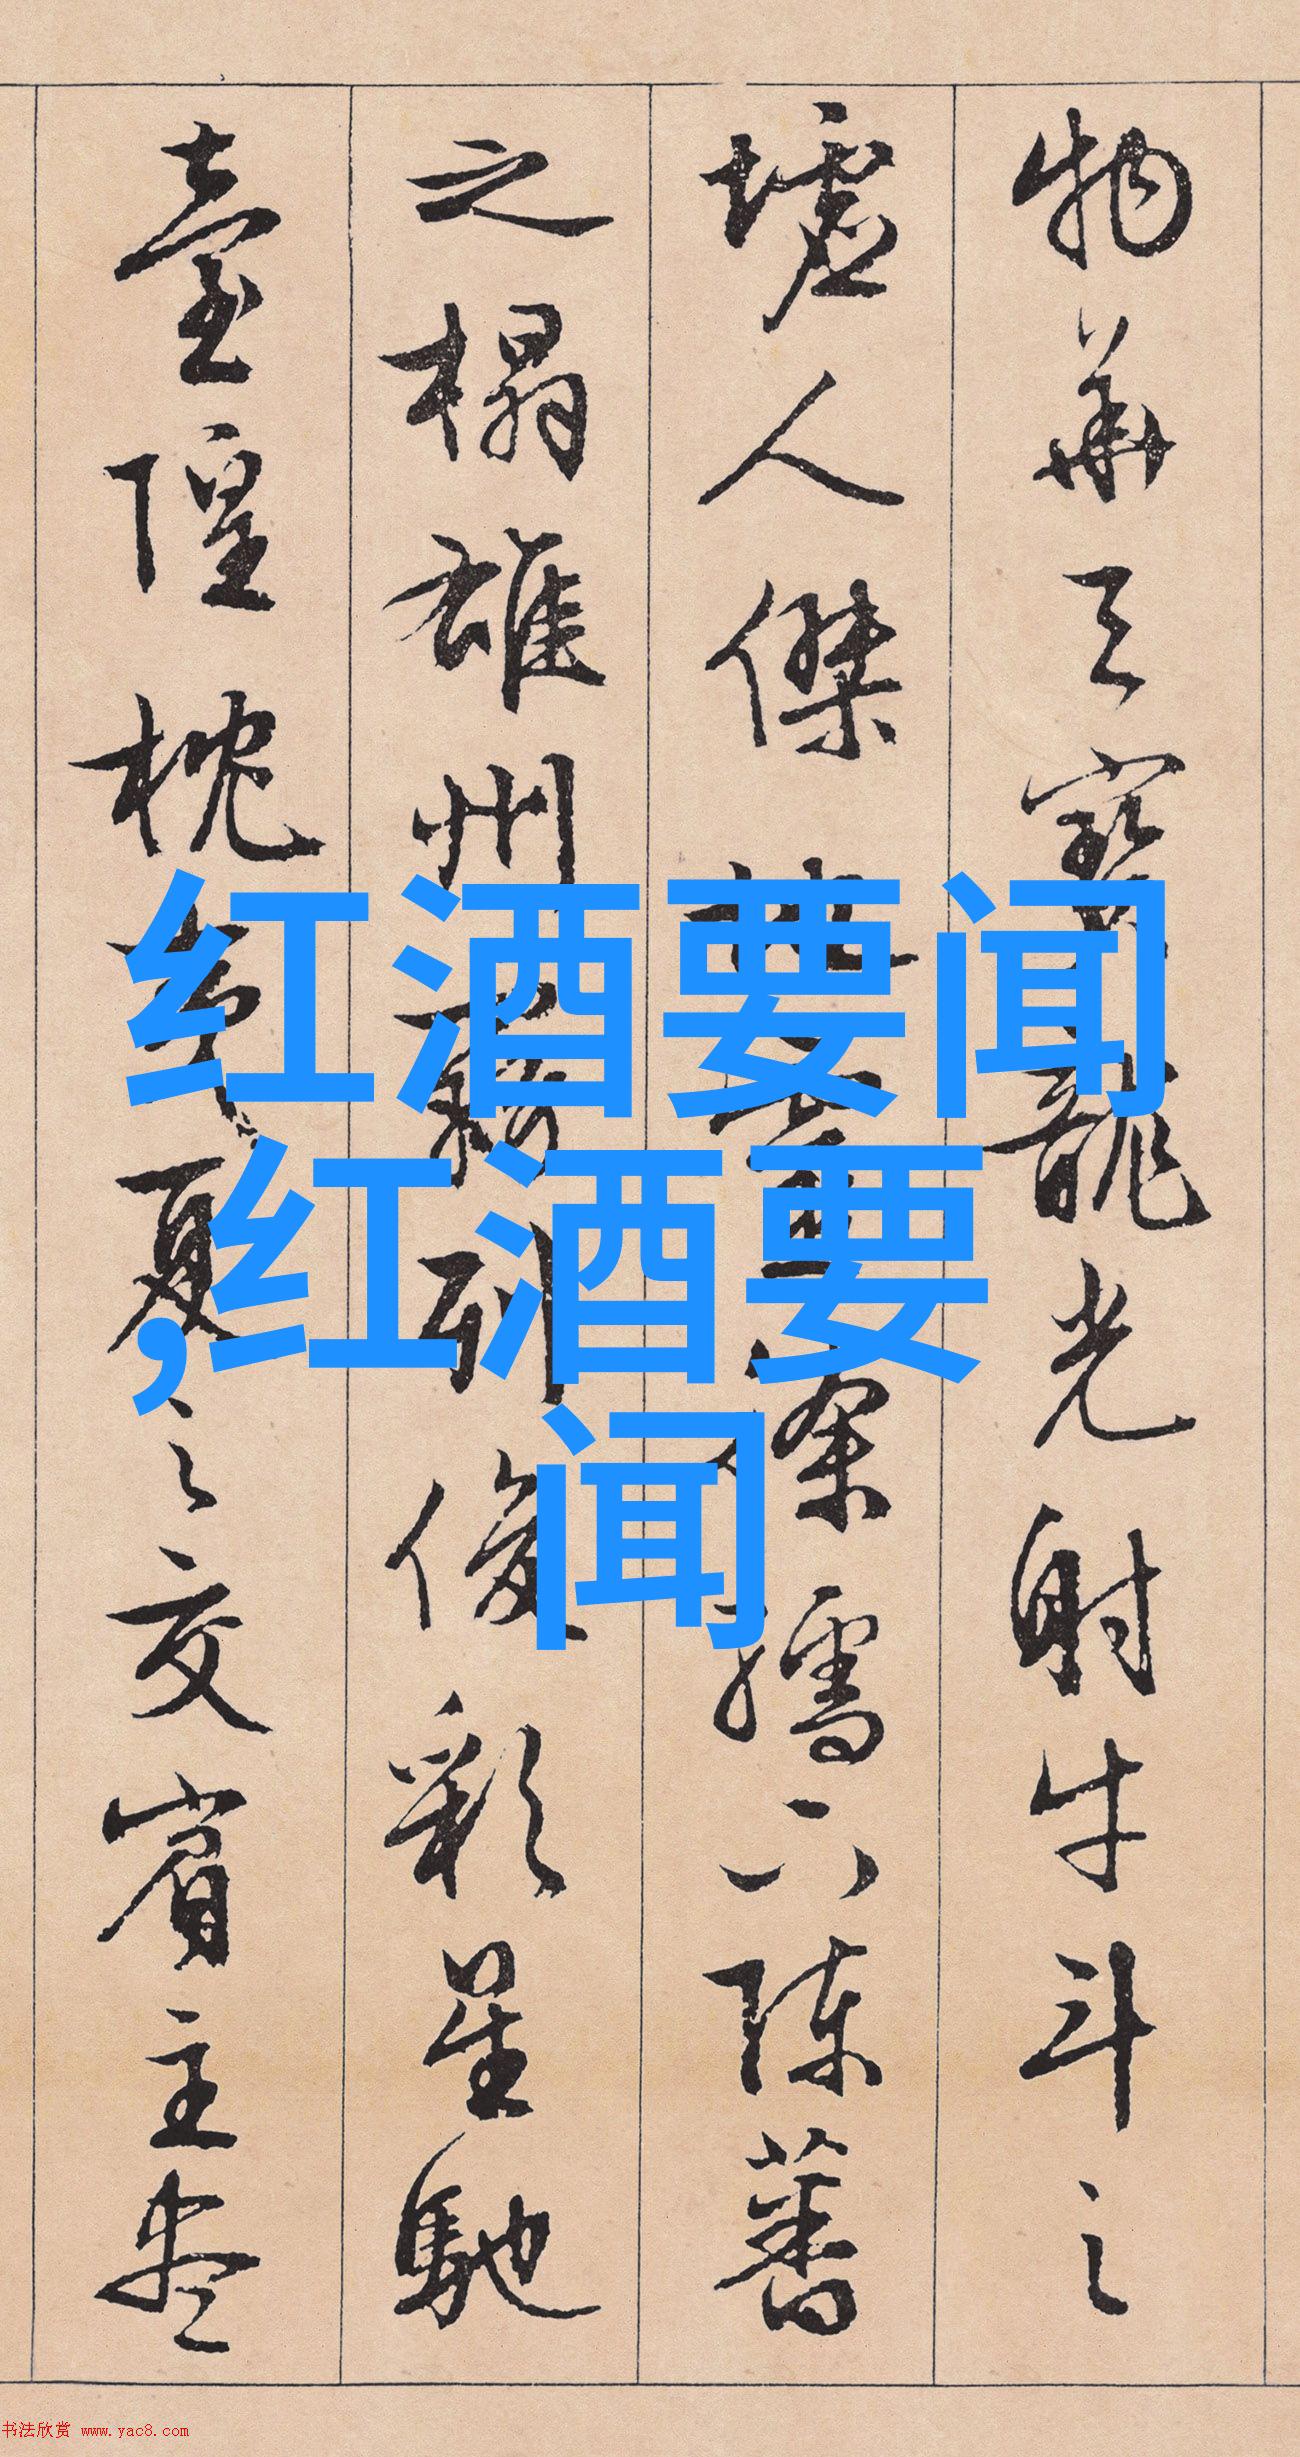 物華天寶龍光射牛斗之
墟人傑地靈徐孺下陳蕃
之榻雄州霧列俊彩星馳
臺隍枕夷夏之交賓主盡
红酒要闻
,红酒要
闻
书法欣赏 www.yac8.com